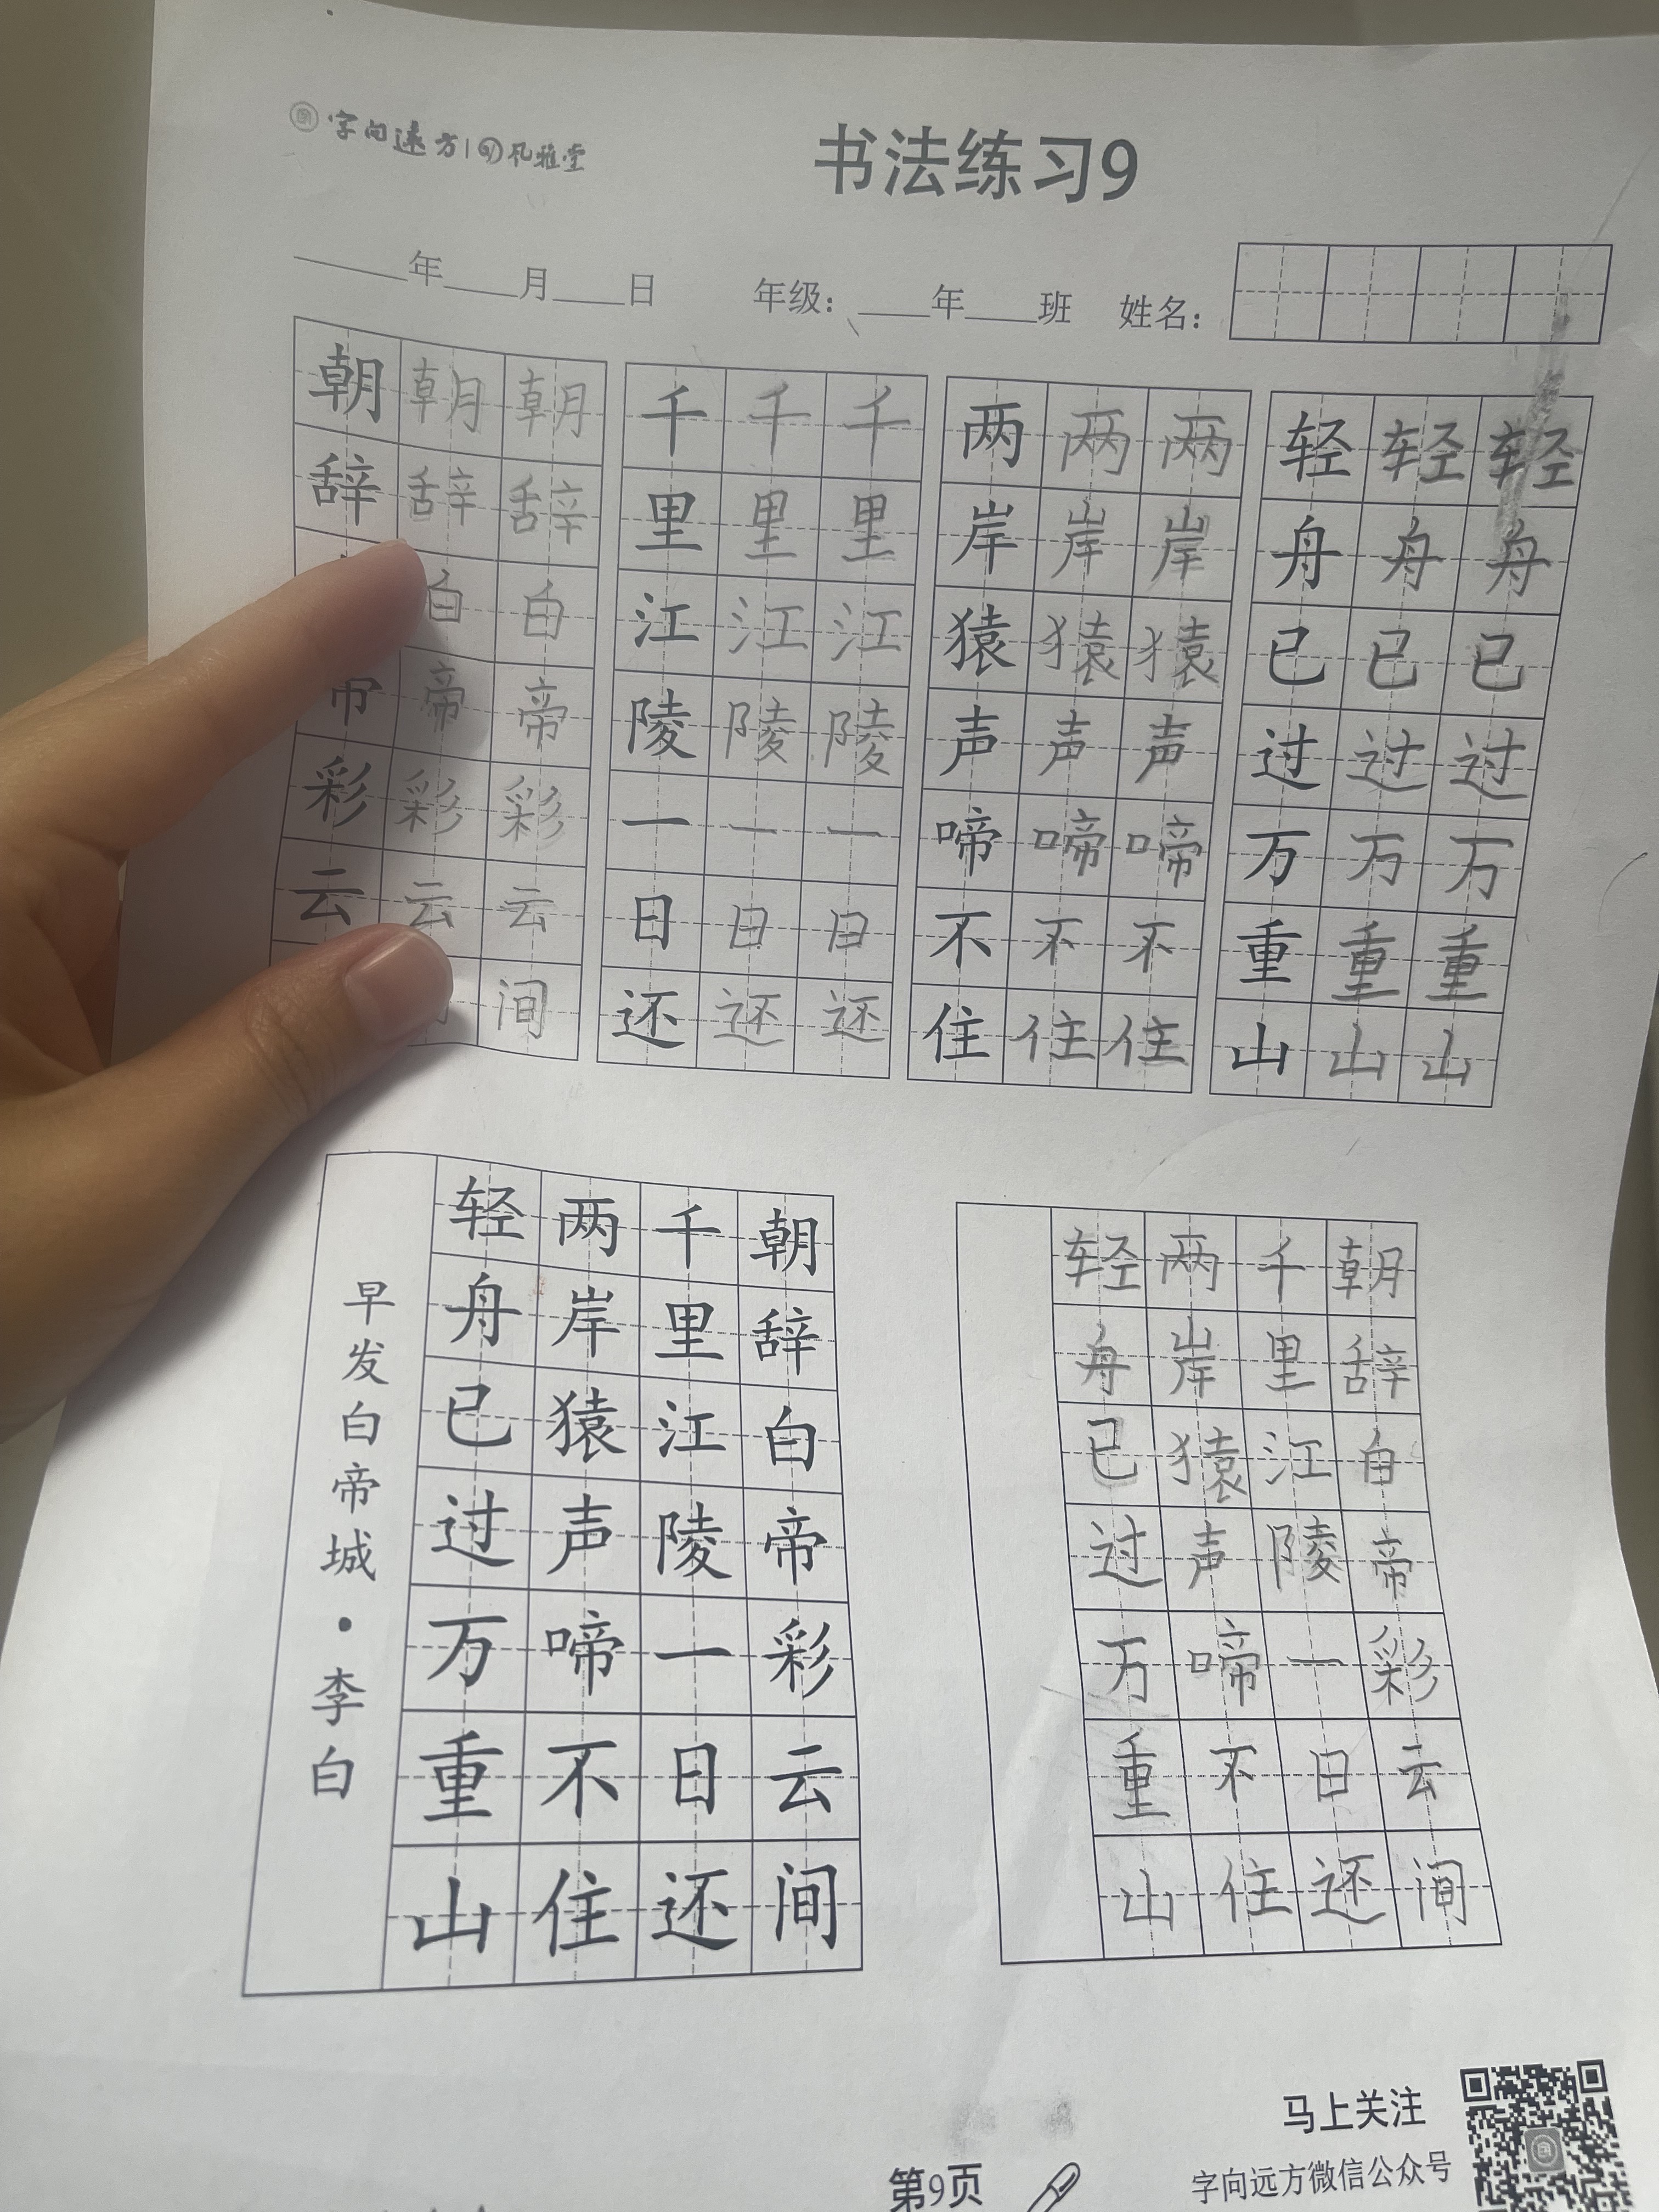 字向远方|风雅堂
书法练习9
____年____月____日 年级：____年____班 姓名：
朝朝朝
辞辞辞
白白
帝帝帝
彩彩彩
云云云
间
千千千
里里里
江江江
陵陵陵
一一一
日日日
还还还
两两两
岸岸岸
猿猿猿
声声声
啼啼啼
不不不
住住住
轻轻轻
舟舟舟
已已已
过过过
万万万
重重重
山山山
朝辞白帝彩云间
千里江陵一日还
两岸猿声啼不住
轻舟已过万重山
早发白帝城·李白
朝辞白帝彩云间
千里江陵一日还
两岸猿声啼不住
轻舟已过万重山
马上关注
字向远方微信公众号
第9页